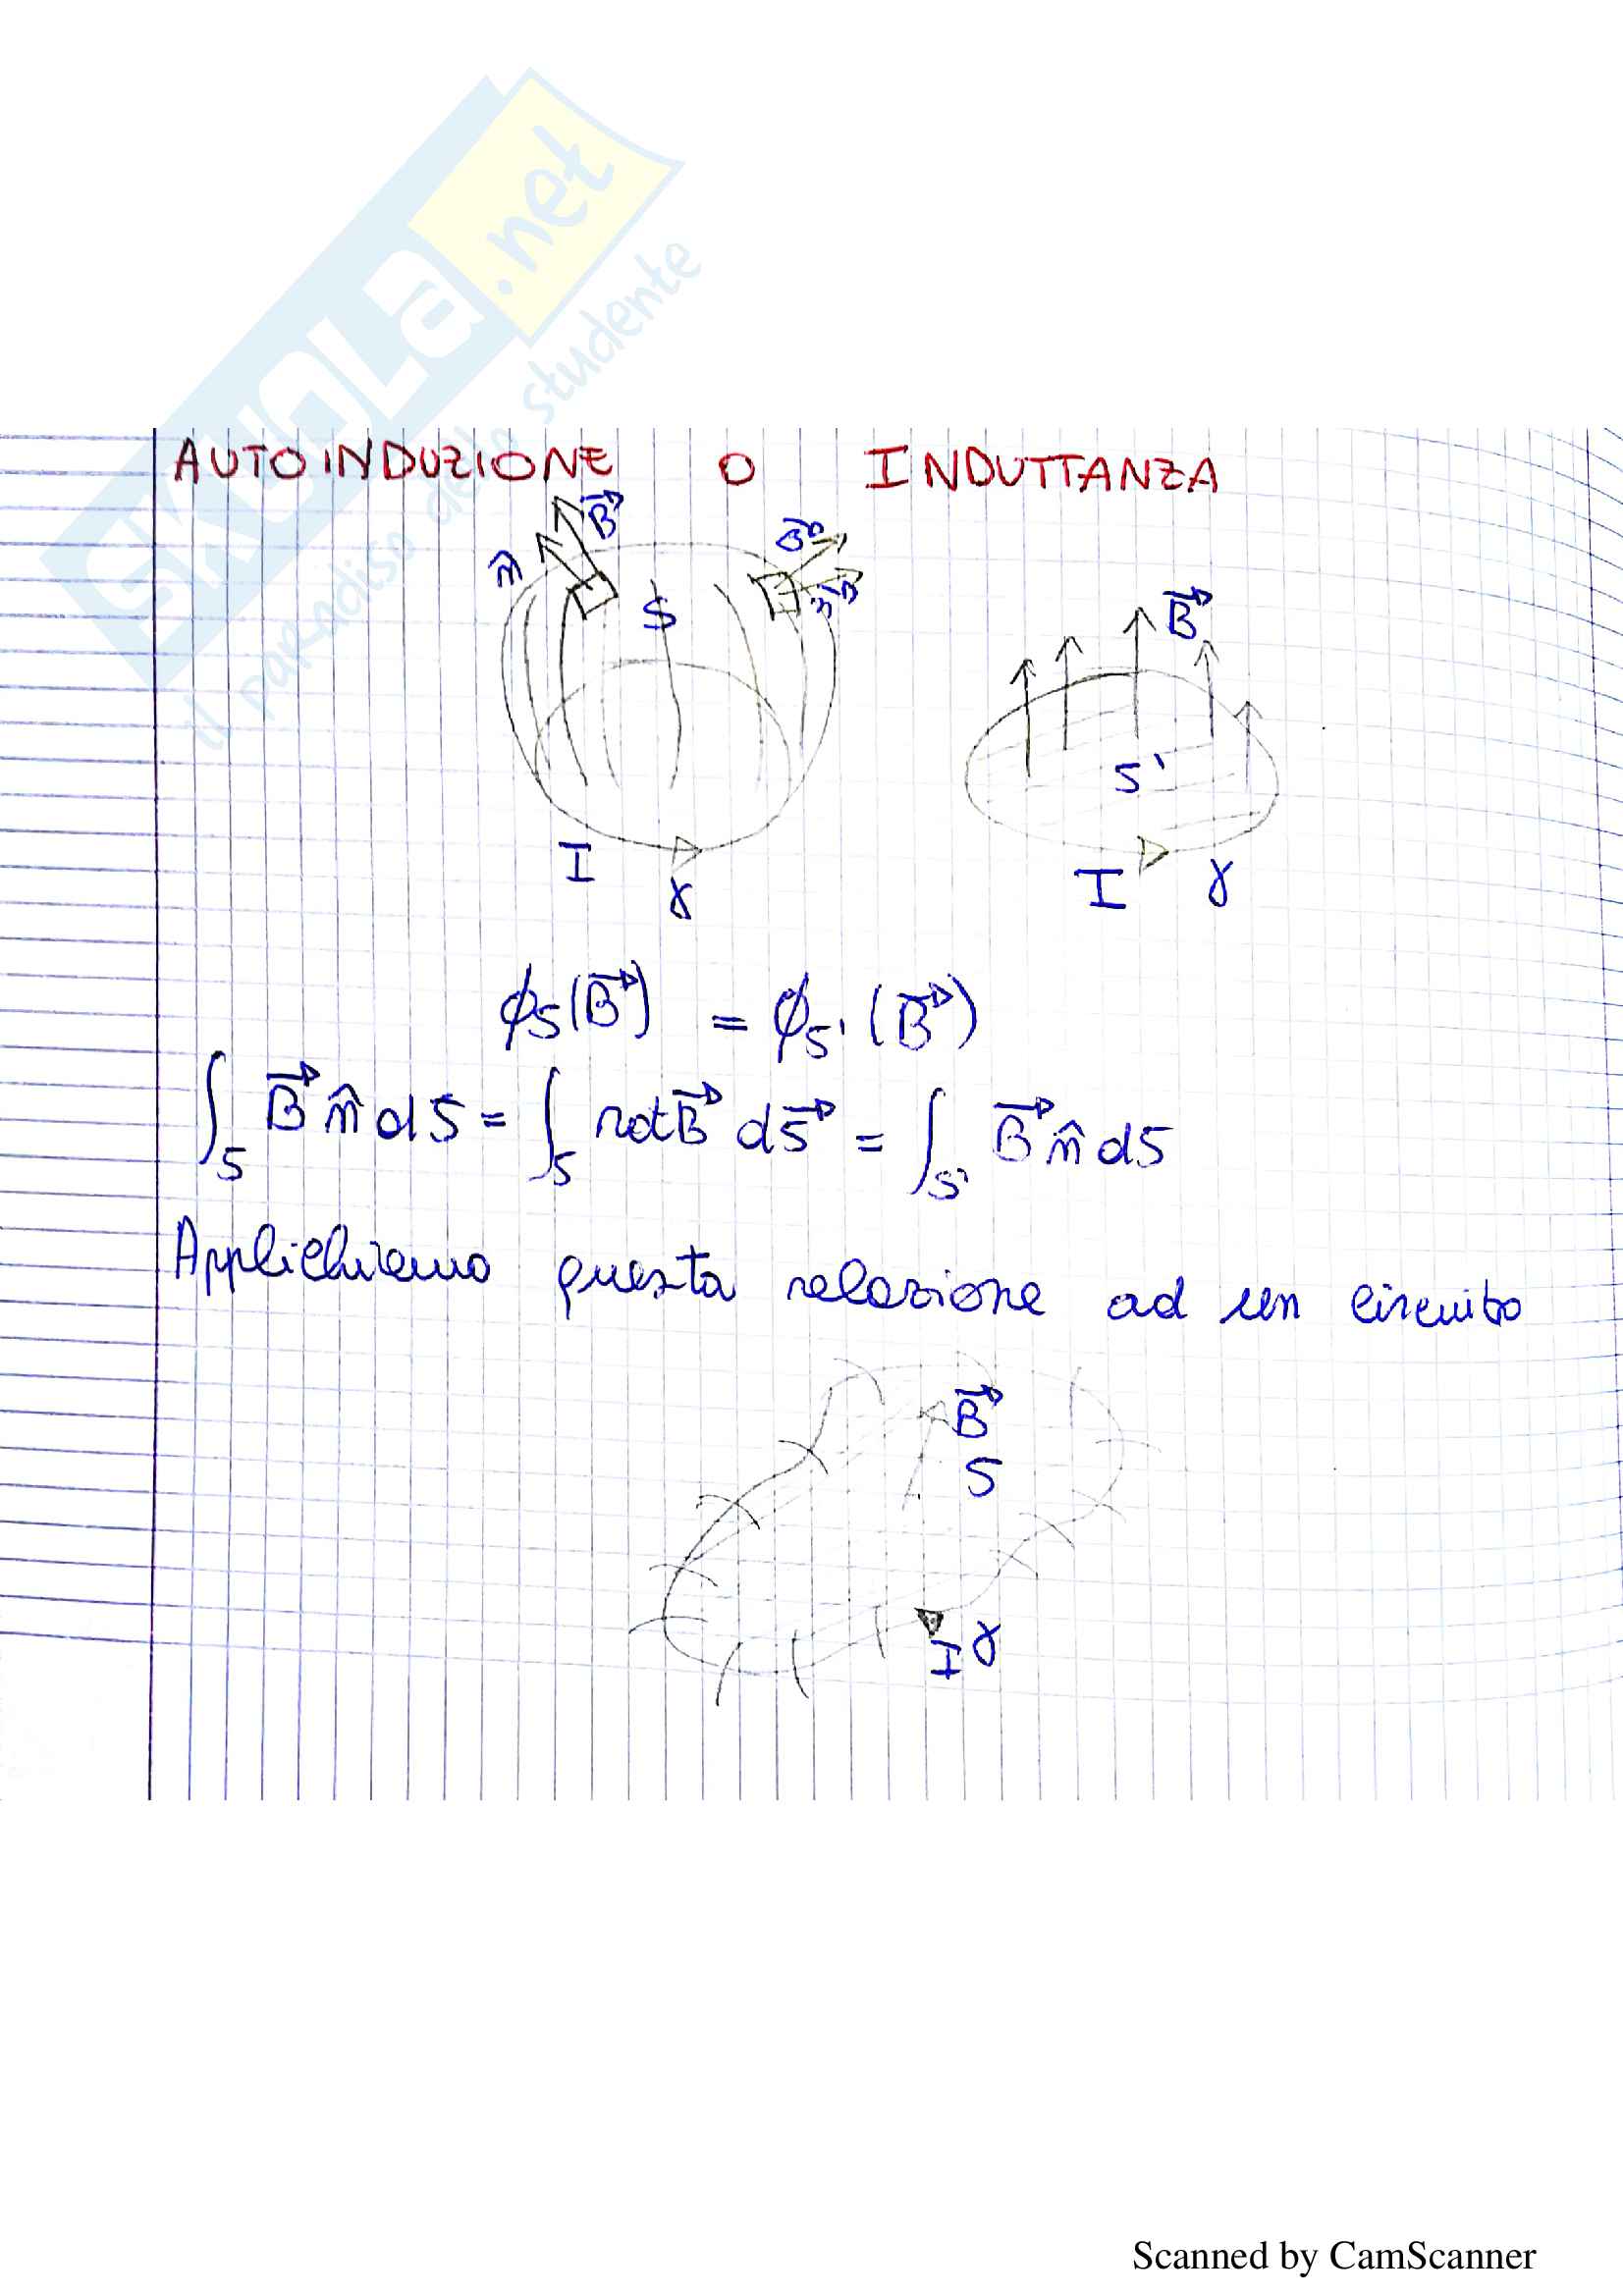 SKUOLA.net
il paradiso dello studente
AUTOINDUZIONE O INDUTTANZA
n̂ B⃗ S B⃗ n⃗ B⃗
S'
I γ I γ
ϕS(B⃗) = ϕS'(B⃗)
∫S B⃗ n̂ dS = ∫S rot B⃗ dS⃗ = ∫S' B⃗ n̂ dS
Applichiamo questa relazione ad un circuito
B⃗
S
I γ
Scanned by CamScanner